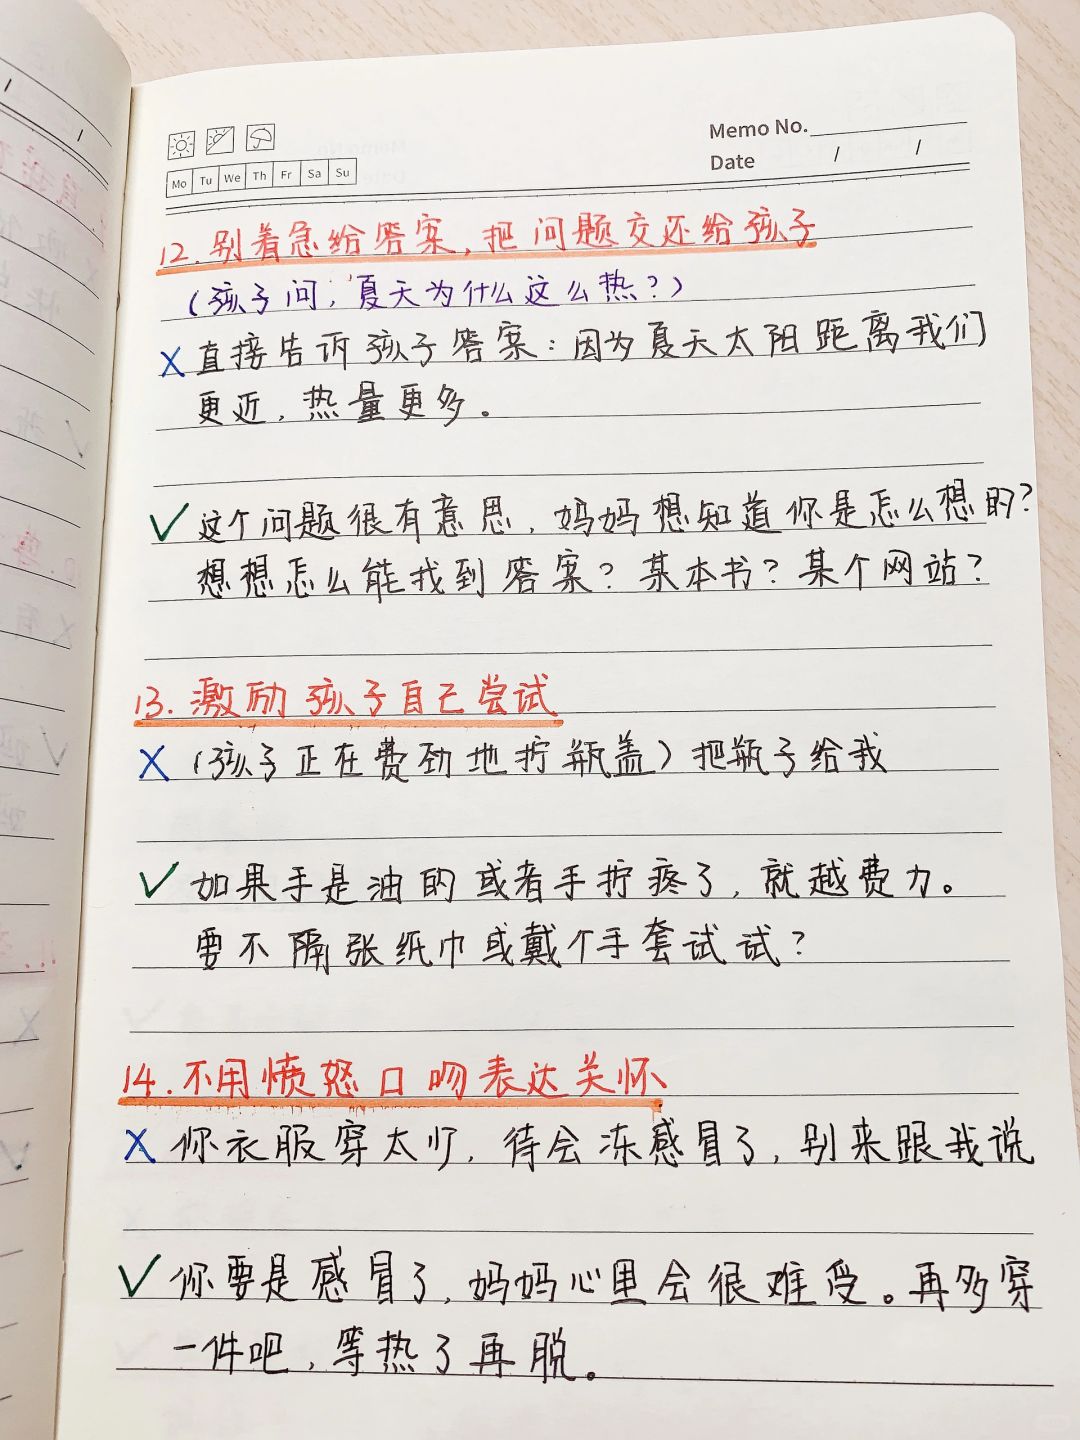 Memo No.
Date / /
Mo Tu We Th Fr Sa Su
12.别着急给答案,把问题交还给孩子
(孩子问,夏天为什么这么热?)
X 直接告诉孩子答案:因为夏天太阳距离我们
更近,热量更多。
✓ 这个问题很有意思,妈妈想知道你是怎么想的?
想想怎么能找到答案?某本书?某个网站?
13.激励孩子自己尝试
X (孩子正在费劲地拧瓶盖)把瓶子给我
✓ 如果手是油的或者手拧疼了,就越费力。
要不隔张纸巾或戴个手套试试?
14.不用愤怒口吻表达关怀
X 你衣服穿太少,待会冻感冒了,别来跟我说
✓ 你要是感冒了,妈妈心里会很难受。再多穿
一件吧,等热了再脱。